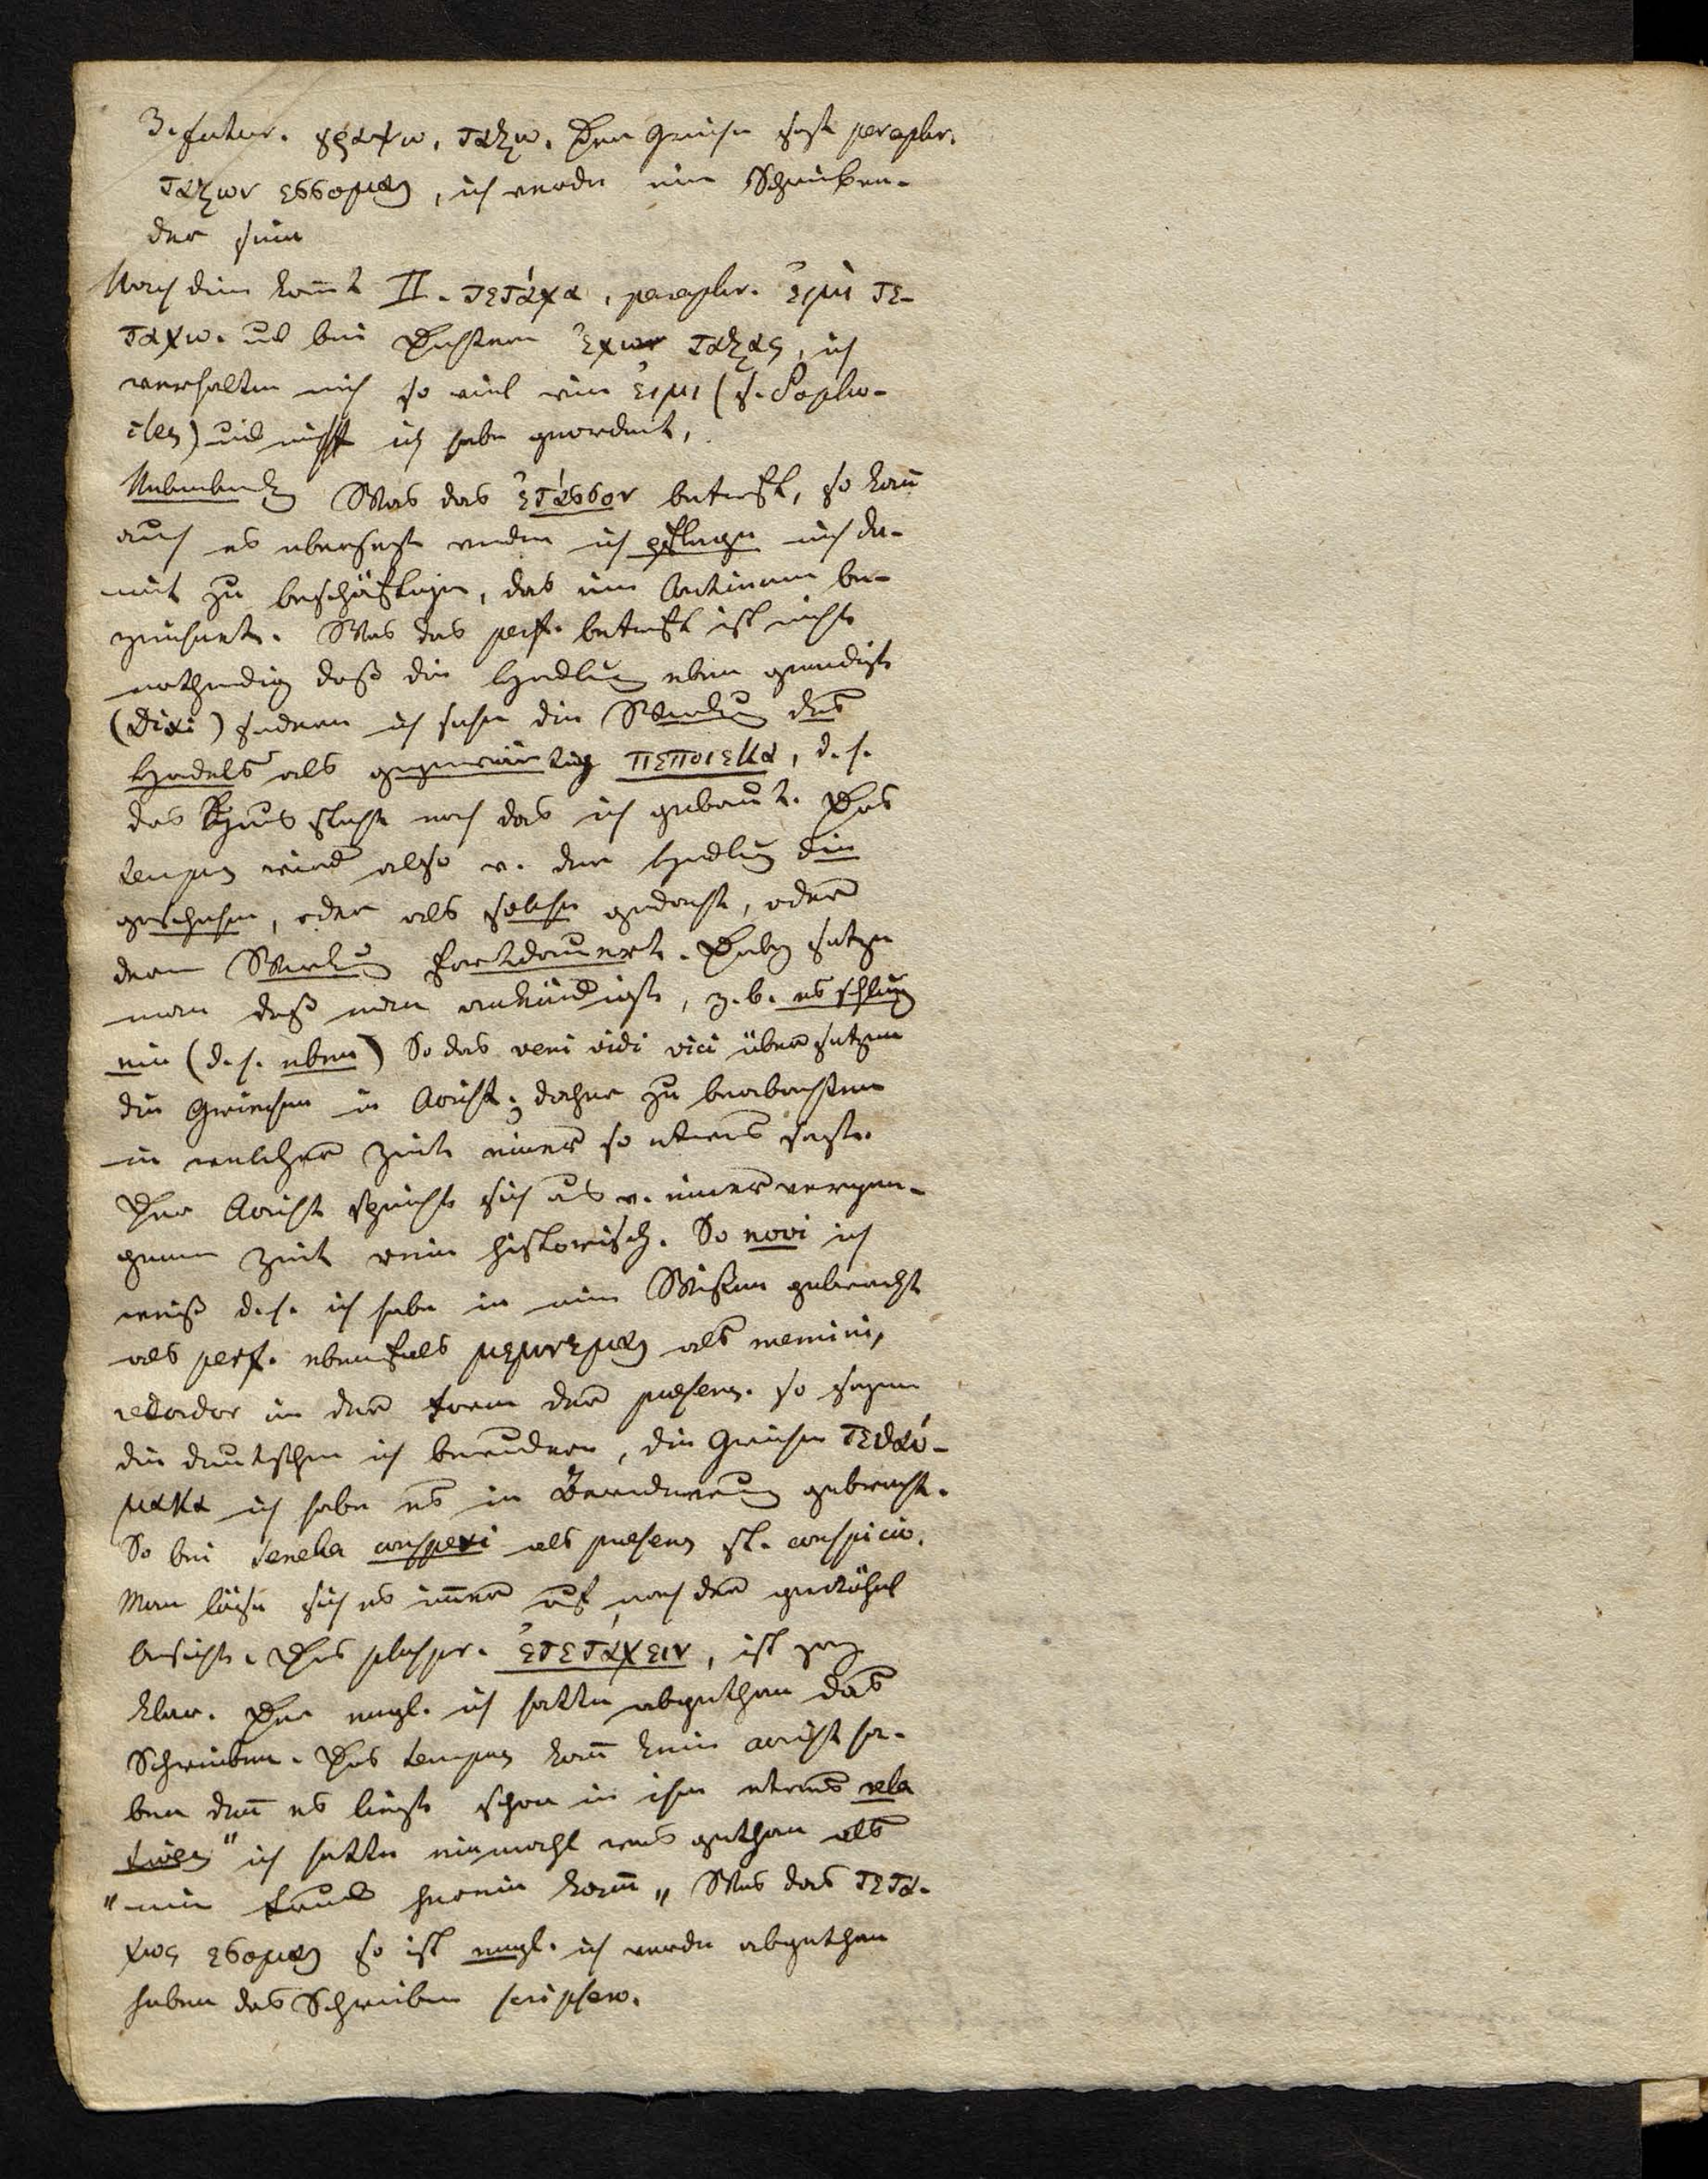 3. futur. γραψω, ταξω. Der Grieche sagt peraphr.
ταξων εσσομαι, ich werde ein Schreiben-
der sein
Nach dem komt II. τετάχα, peraphr. ἐιμὶ τε-
ταχω. und bei Dichtern ἐχων ταξας, ich
verhalten mich so viel wie ἐιμι (s. Sopho-
cles) und nicht ich habe geordnet,
Was das ἐτάσσον betrift, so kan
auch es übersezt werden ich pflege mich da-
mit zu beschäftigen, das eine Actionem be-
zeichnet. Was das perf. betrift ist nicht
nothwendig daß die Handlung eben geendigt
(dixi) sondern ich sehe die Wirkung des
Handels als gegenwärtig πεποιεκα, d. h.
das Haus steht noch das ich gebaut. Das
tempus wird also v. der Handlung die
geschehen, oder als solche gedacht, oder
deren Wirkung fortdauert. Dabey setze
man daß man ankündigt, z. b. es schlug
ein (d. h. eben) So das veni vidi vici übersetzen
die Griechen in Aorist; daher zu beobachten
in welcher Zeit einer so etwas sagte.
Der Aorist spricht sich aus v. einer vergan-
genen Zeit rein historisch. So novi ich
weiß d. h. ich habe in mein Wissen gebracht
als perf. ebenfals μεμνεμαι als memini,
recordor in der Form der praesens. so sagen
die deutschen ich bewundere, die Griechen τεθαύ-
μακα ich habe es in Bewunderung gebracht.
So bei Seneka conspexi als praesens st. conspicio.
Man löse sich es immer auf nach der gewöhnl
Ansicht. Das plusqpr. ἐτετάχειν, ist ganz
klar. Der engl. ich hatte abgethan das
Schreiben. Das tempus kan kein aorist ha-
ben den es liegt schon in ihm etwas rela
tives "ich hatte einmahl was gethan als
"mein Freund herein kam„ Was das τετα-
χως εσομαι so ist engl. ich werde abgethan
haben das Schreiben scripsero.